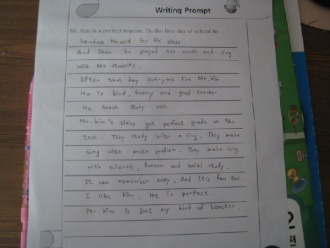 Writing Prompt
Mr. Kim is a perfect teacher. On the first day of school he
himself for his class.
And then he played the music and sing
with the students.
After that day everyone like Mr. Kim
He is kind, funny and good teacher.
He teach study well.
Mr. Kim's class get perfect grade on the
test. They study like a song. They make
song with music problem. They make song
with science, korean and social study.
It can remember easy. And it's fun too
I like him. He is perfect
Mr Kim is just my kind of teacher.